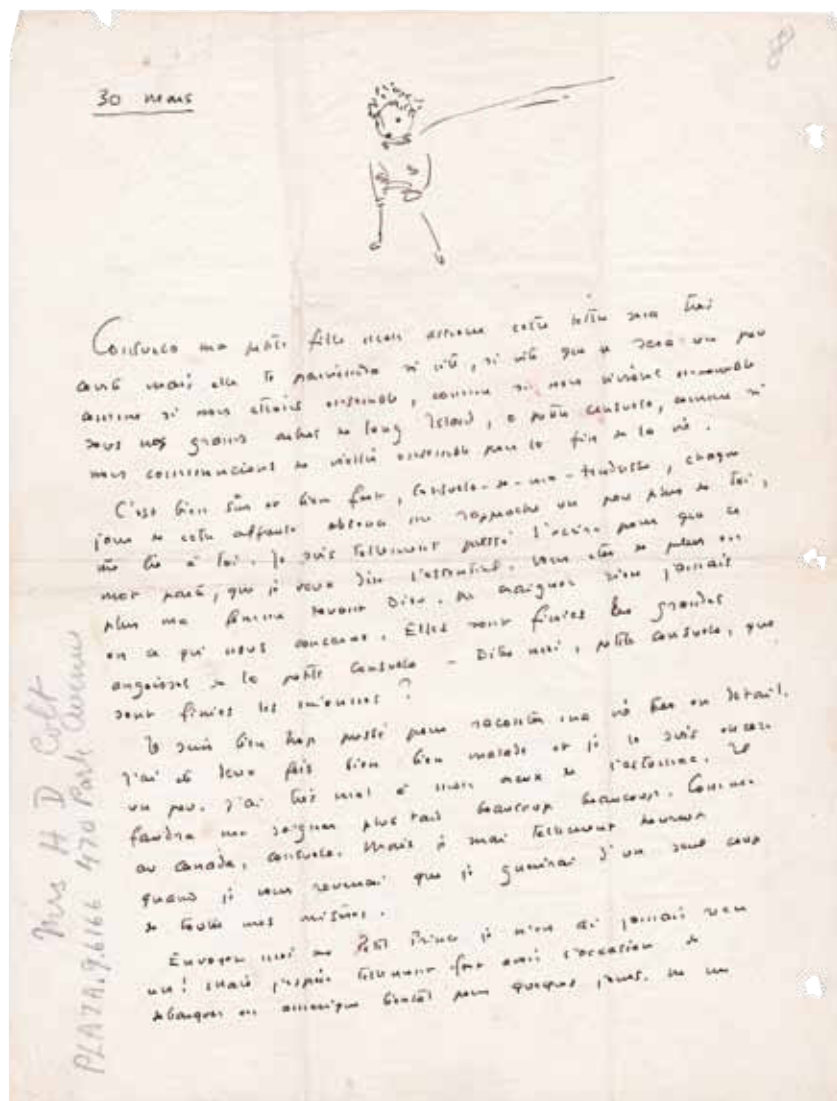 30 mars
Consuelo ma petite fille mon amour cette lettre sera très
courte mais elle te parviendra si vite, si vite que ce sera un peu
comme si nous étions ensemble, comme si nous vivions ensemble
sous nos grands arbres de long Island, o petite consuelo, comme si
nous commencions de vieillir ensemble pour la fin de la vie.
C'est bien sûr et bien fort, Consuelo-de-ma-tendresse, chaque
jour de cette affreuse absence me rapproche un peu plus de toi,
me lie à toi. Je suis tellement pressé pour que ce
mot parte, que je veux dire l'essentiel. Vous êtes de plus en
plus ma femme devant Dieu. Ne craignez rien jamais
en ce qui nous concerne. Elles sont finies les grandes
angoisses de la petite consuelo – Dites moi, petite consuelo, que
sont finies les miennes ?
Je suis bien trop pressé pour raconter ma vie en détail.
J'ai été deux fois bien bien malade et je le suis encore
un peu. J'ai très mal à mon creux de l'estomac. Il
faudra me soigner plus tard beaucoup beaucoup. Comme
au Canada, consuelo. Mais je serai tellement heureux
quand je vous reverrai que je guérirai d'un seul coup
de toutes mes misères.
Envoyez moi un Petit Prince je n'en ai jamais
un! Mais j'espère tellement fort avoir l'occasion de
débarquer en amerique bientôt pour quelques jours.
Mrs H D Colt
PLAZA.9.6166 470 Park Avenue